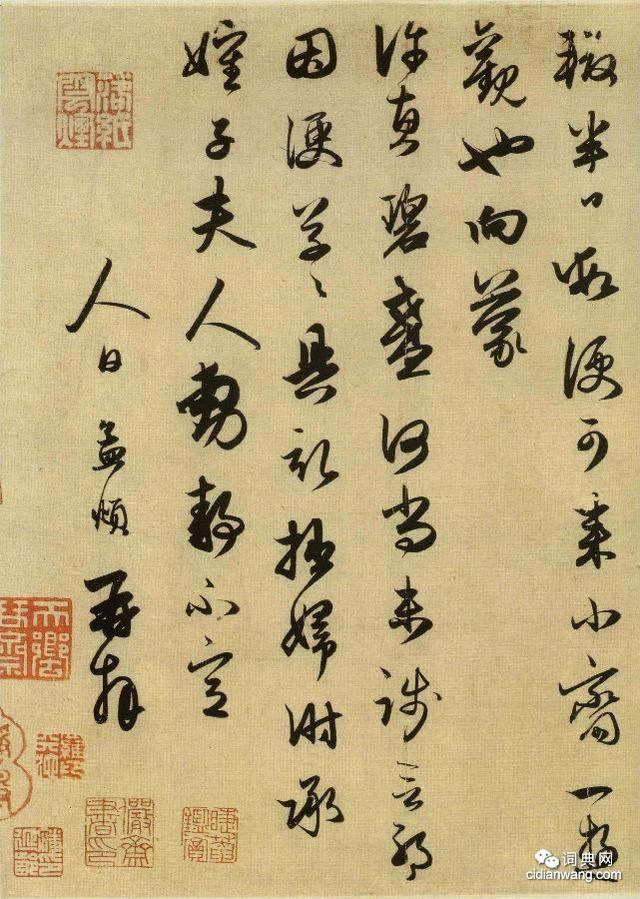 輟半日暇便可來小齋一遊
觀也向蒙
許惠碧盞何尚未踐言耶
因便草々具記拙婦附承
嬸子夫人動靜不宣
人日 孟頫 再拜
詞典网
cidianwang.com